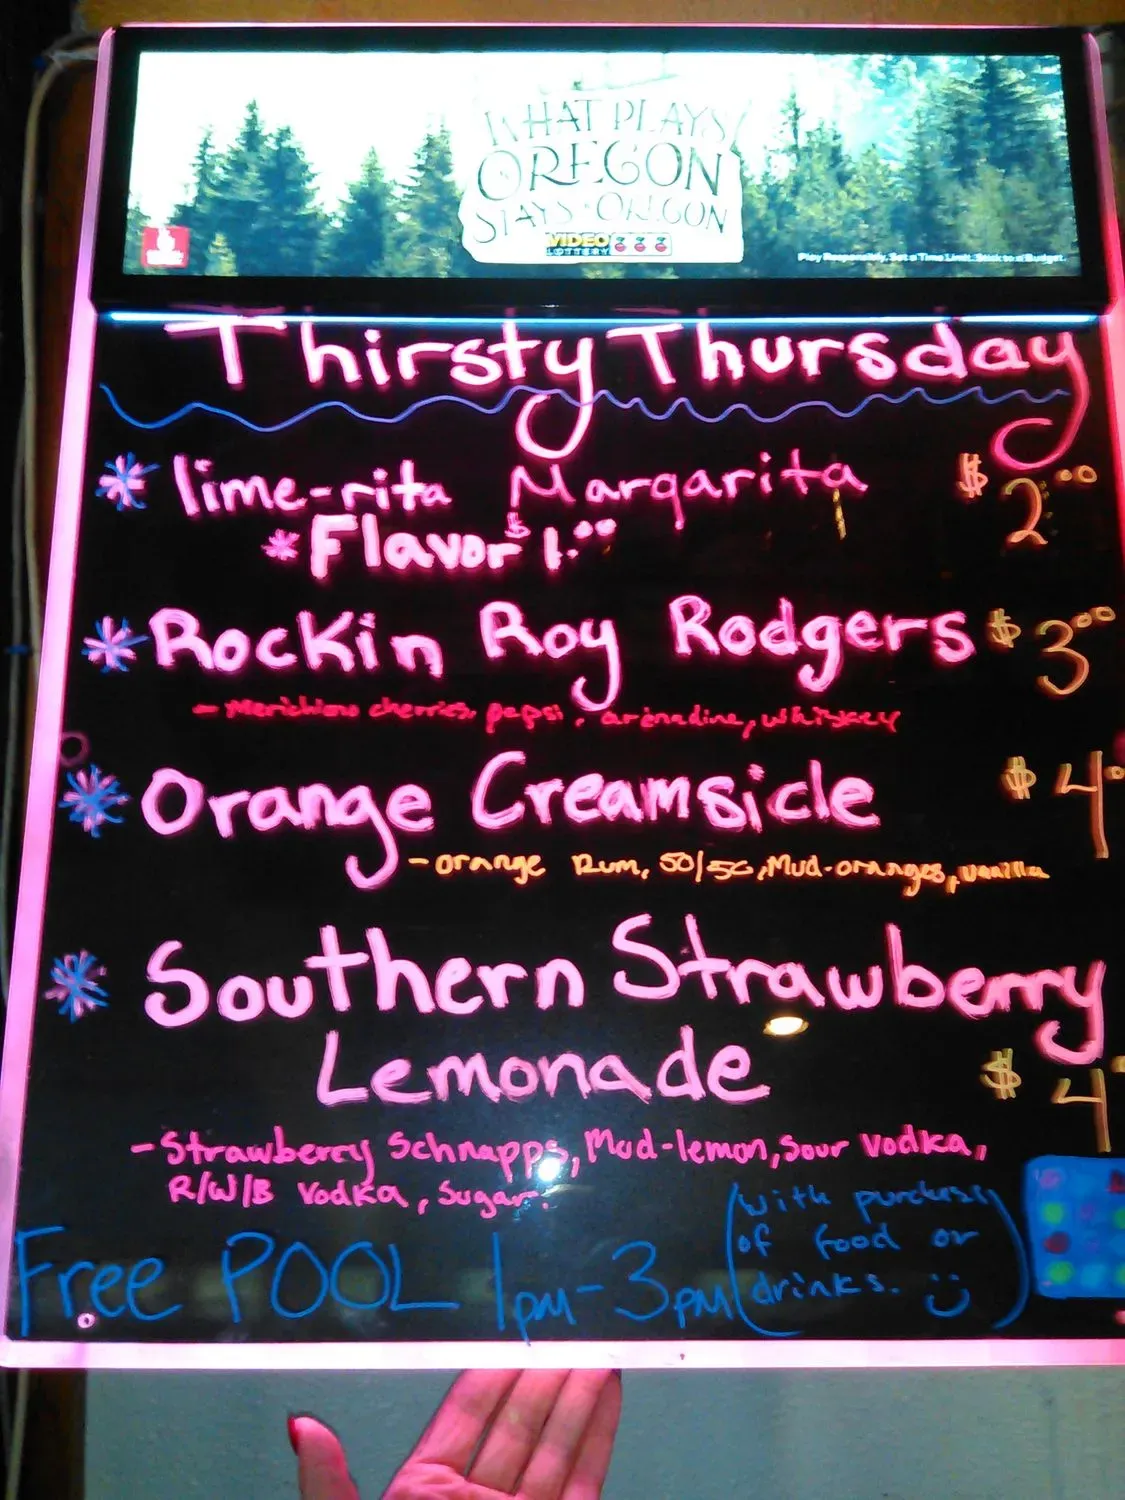 WHAT PLAYS
IN OREGON
STAYS IN OREGON
VIDEO
LOTTERY
Play Responsibly. Set a Time Limit. Stick to a Budget.
Thirsty Thursday
* lime-rita Margarita $2.00
* Flavor $1.00
* Rockin Roy Rodgers $3.00
- Merichino cherries, pepsi, grenadine, whiskey
* Orange Creamsicle $4.0
- orange Rum, 50/50, Mud-oranges, vanilla
* Southern Strawberry
Lemonade $4.0
- Strawberry Schnapps, Mud-lemon, Sour Vodka,
R/W/B Vodka, Sugar.
Free POOL 1pm-3pm (with purchase
of food or
drinks. :)